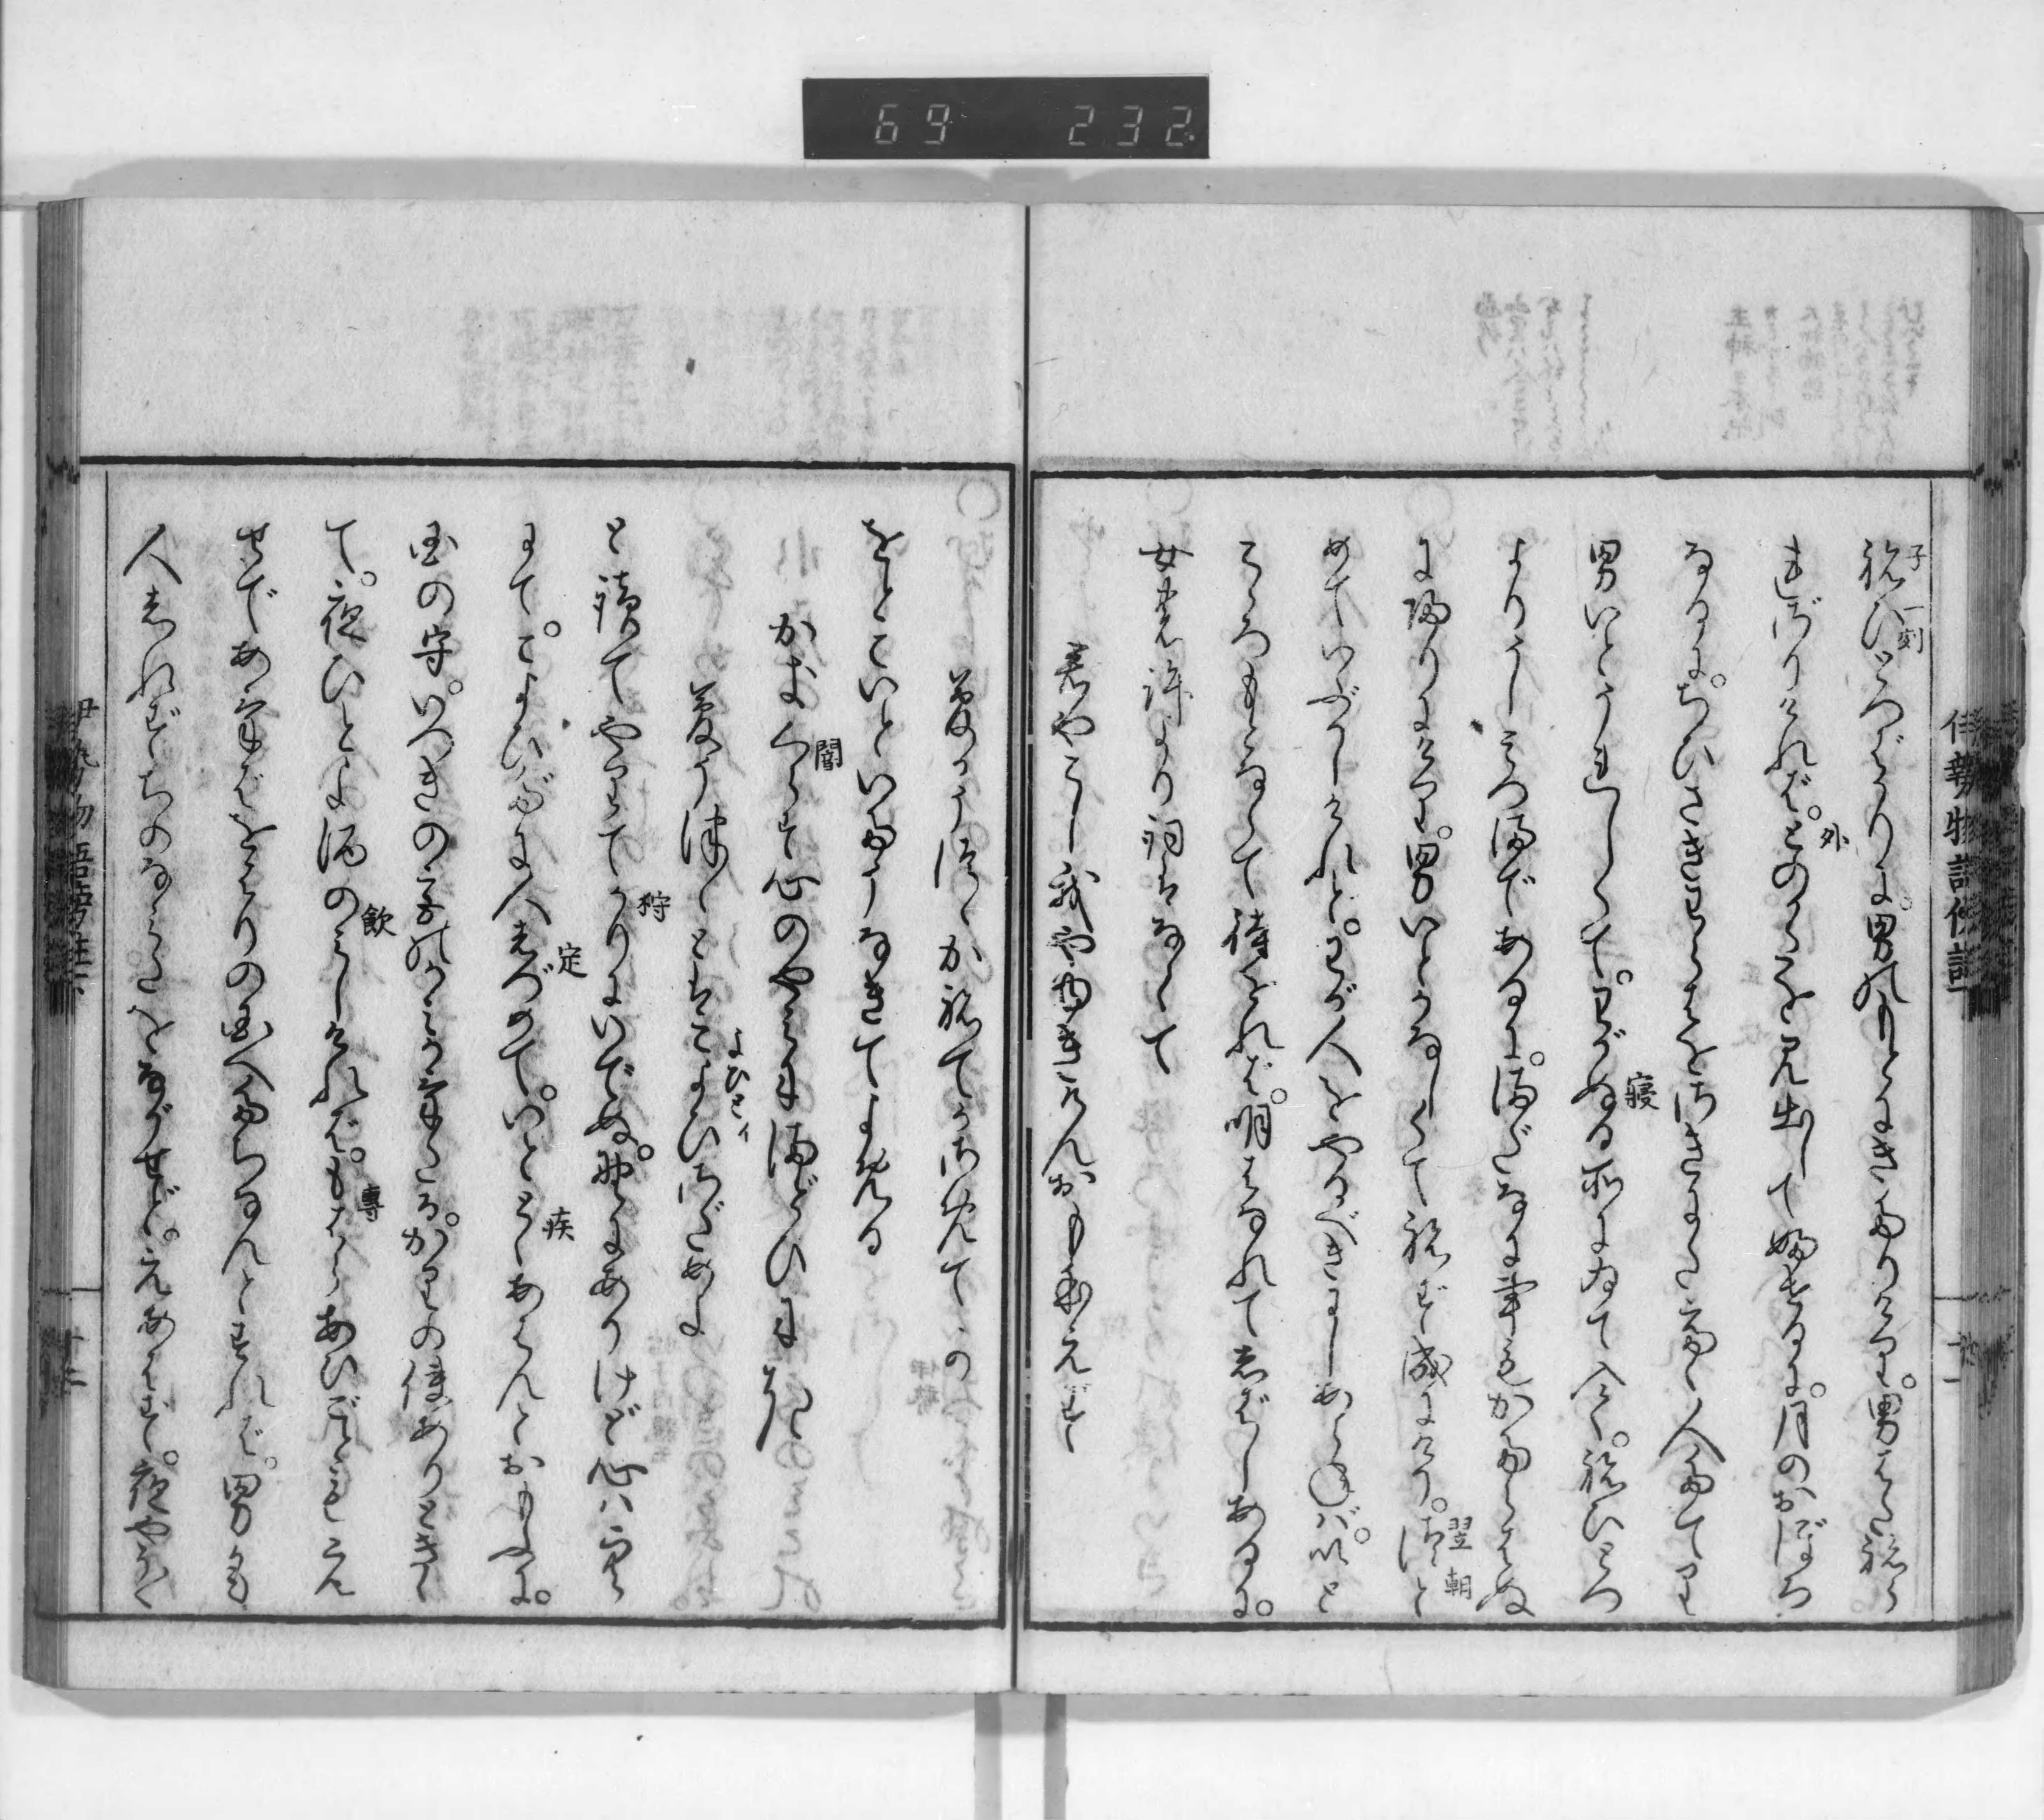 69 232
伊勢物語傍註
子一刻
ねひとつばかりに。男のもとにきたりけり。男はたねら
外
れざりければ。とのかたを見出してふせるに。月のおぼろ
なるに。ちひさきわらはをさきにたてゝ人たてり
寝
男いとうれしくて。わがぬる所にゐて入て。ねひとつ
よりうしみつまであるに。まだなに事もかたらはぬ
翌朝
に帰りにけり。男いとかなしくてねず成にけり。つと
めていぶかしけれど。わが人をやるべきにしあらねば。いと
こゝろもとなくて待をれば。明はなれてしばしあるに。
女の許より詞はなくて
君やこし我やゆきけんおもほえず
夢かうつゝかねてかさめてか
をとこいといたうなきてよめる
闇
かきくらす心のやみにまどひにき
よひとイ
夢うつゝとはこよひさだめよ
狩
と読てやりてかりにいでぬ。野にありけど心ハ空
定 疾
にて。こよひだに人しづめて。いととくあはんとおもふに。
国の守。いつきの宮のかみかけたる。かりの使ありときゝ
飲 専
て。夜ひとよ酒のみしければ。もはらあひごともえ
せであけばをはりの国へたちなんとすれば。男も
人しれずちのなみだをながせど。えあはず。夜やうやく